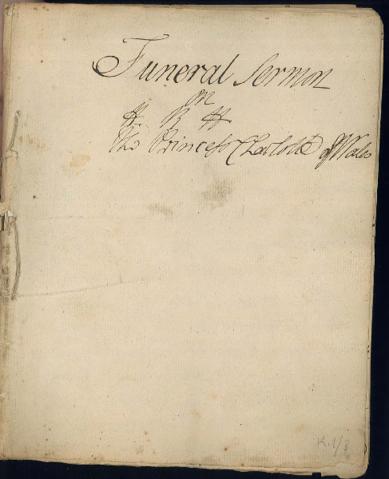 Funeral Sermon
on
H. R. H
The Princess Charlotte of Wales
K.1/8